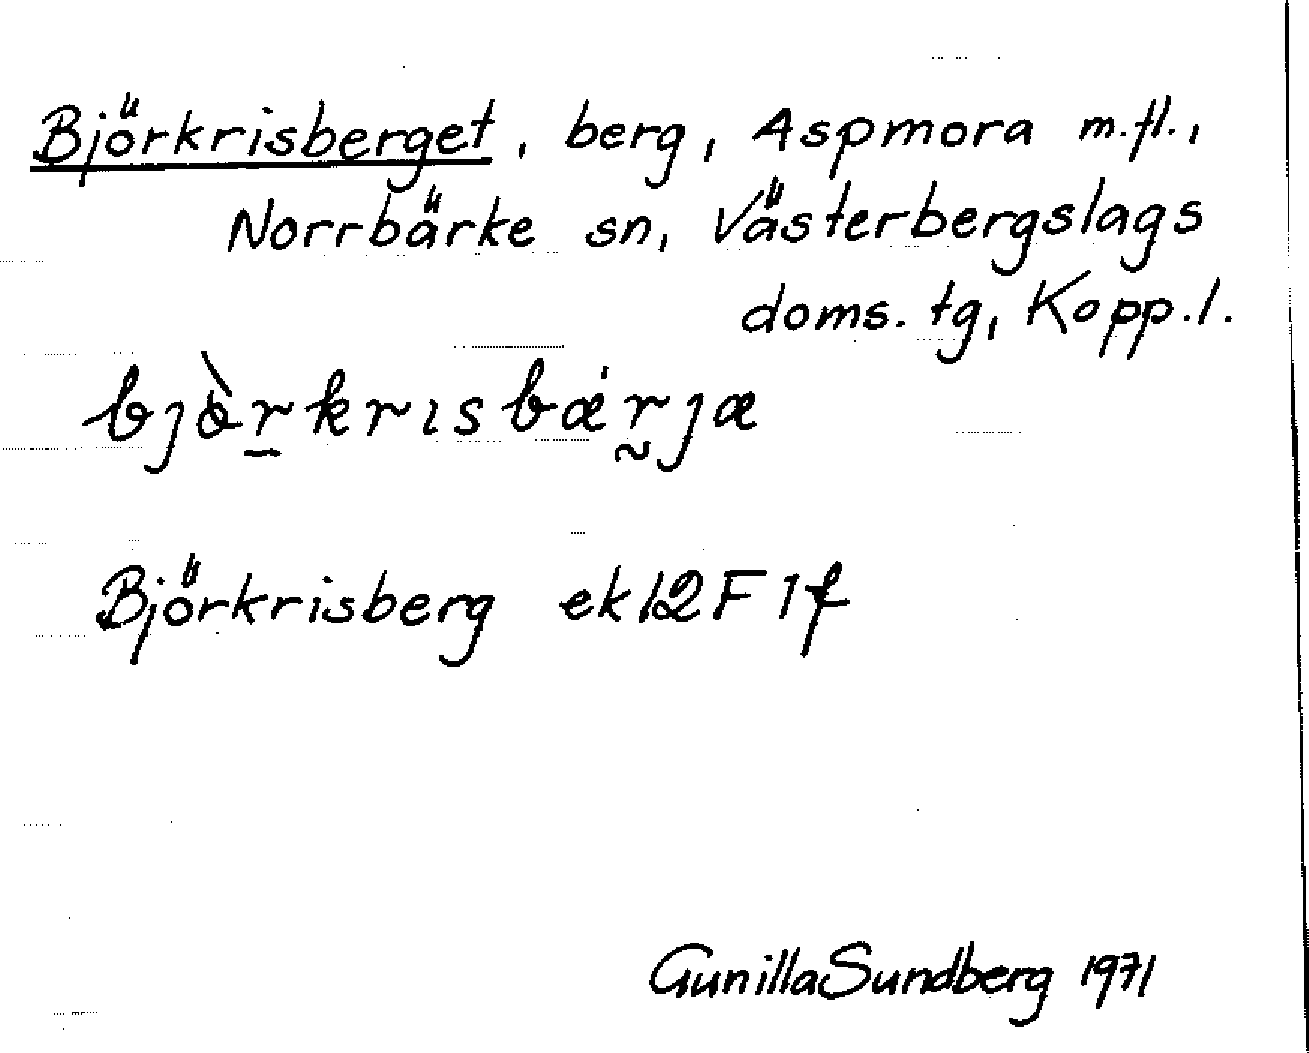 Björkrisberget, berg, Aspmora m.fl.,
Norrbärke sn, Västerbergslags
doms. tg, Kopp.l.
bjòr̠krisbǽr̰jæ
Björkrisberg ek 12 F 1 f
Gunilla Sundberg 1971